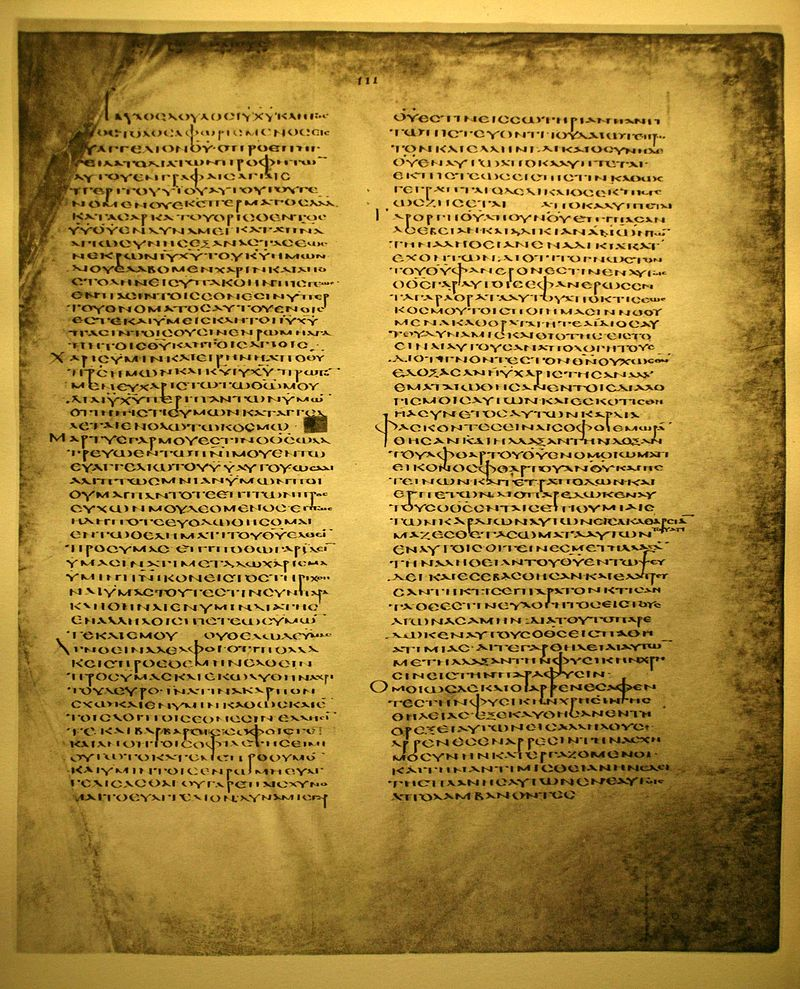 ΠΑΥΛΟϹΔΟΥΛΟϹΙΥΧΥΚΛΗΤΟϹΑ
ΠΟϹΤΟΛΟϹΑΦΩΡΙϹΜΕΝΟϹΕΙϹ
ΕΥΑΓΓΕΛΙΟΝΘΥ·ΟΠΡΟΕΠΗΓ
ΓΕΙΛΑΤΟΔΙΑΤΩΝΠΡΟΦΗΤΩ
ΑΥΤΟΥΕΝΓΡΑΦΑΙϹΑΓΙΑΙϹ
ΠΕΡΙΤΟΥΥΙΟΥΑΥΤΟΥΤΟΥΓΕ
ΝΟΜΕΝΟΥΕΚϹΠΕΡΜΑΤΟϹΔΑΔ
ΚΑΤΑϹΑΡΚΑΤΟΥΟΡΙϹΘΕΝΤΟϹ
ΥΥΘΥΕΝΔΥΝΑΜΕΙΚΑΤΑΠΝΑ
ΑΓΙΩϹΥΝΗϹΕΞΑΝΑϹΤΑϹΕΩϹ
ΝΕΚΡΩΝΙΥΧΥΤΟΥΚΥΗΜΩΝ
ΔΙΟΥΕΛΑΒΟΜΕΝΧΑΡΙΝΚΑΙΑΠΟ
ϹΤΟΛΗΝΕΙϹΥΠΑΚΟΗΝΠΙϹΤΕΩϹ
ΕΝΠΑϹΙΝΤΟΙϹΕΘΝΕϹΙΝΥΠΕΡ
ΤΟΥΟΝΟΜΑΤΟϹΑΥΤΟΥΕΝΟΙϹ
ΕϹΤΕΚΑΙΥΜΕΙϹΚΛΗΤΟΙΙΥΧΥ
ΠΑϹΙΝΤΟΙϹΟΥϹΙΝΕΝΡΩΜΗΑΓΑ
ΠΗΤΟΙϹΘΥΚΛΗΤΟΙϹΑΓΙΟΙϹ
ΧΑΡΙϹΥΜΙΝΚΑΙΕΙΡΗΝΗΑΠΟΘΥ
ΠΡϹΗΜΩΝΚΑΙΚΥΙΥΧΥΠΡΩΤΟ
ΜΕΝΕΥΧΑΡΙϹΤΩΤΩΘΩΜΟΥ
ΔΙΑΙΥΧΥΠΕΡΙΠΑΝΤΩΝΥΜΩ
ΟΤΙΗΠΙϹΤΙϹΥΜΩΝΚΑΤΑΓΓΕΛ
ΛΕΤΑΙΕΝΟΛΩΤΩΚΟϹΜΩ
ΜΑΡΤΥϹΓΑΡΜΟΥΕϹΤΙΝΟΘϹΩΛΑ
ΤΡΕΥΩΕΝΤΩΠΝΙΜΟΥΕΝΤΩ
ΕΥΑΓΓΕΛΙΩΤΟΥΥΥΑΥΤΟΥΩϹΑΔΙ
ΑΛΙΠΤΩϹΜΝΙΑΝΥΜΩΝΠΟΙ
ΟΥΜΑΙΠΑΝΤΟΤΕΕΠΙΤΩΝΠΡΟϹ
ΕΥΧΩΝΜΟΥΔΕΟΜΕΝΟϹΕΙΠΩϹ
ΗΔΗΠΟΤΕΕΥΟΔΩΘΗϹΟΜΑΙ
ΕΝΤΩΘΕΛΗΜΑΤΙΤΟΥΘΥΕΛΘΕΙ
ΠΡΟϹΥΜΑϹΕΠΙΠΟΘΩΓΑΡΙΔΕΙ
ΥΜΑϹΙΝΑΤΙΜΕΤΑΔΩΧΑΡΙϹΜΑ
ΥΜΙΝΠΝΙΚΟΝΕΙϹΤΟϹΤΗΡΙΧΘΗ
ΝΑΙΥΜΑϹΤΟΥΤΕϹΤΙΝϹΥΝΠΑΡΑ
ΚΛΗΘΗΝΑΙΕΝΥΜΙΝΔΙΑΤΗϹ
ΕΝΑΛΛΗΛΟΙϹΠΙϹΤΕΩϹΥΜΩ
ΤΕΚΑΙΕΜΟΥ ΟΥΘΕΛΩΔΕΥΜΑϹ
ΑΓΝΟΕΙΝΑΔΕΛΦΟΙΟΤΙΠΟΛΛΑ
ΚΕΙϹΠΡΟΕΘΕΜΗΝΕΛΘΕΙΝ
ΠΡΟϹΥΜΑϹΚΑΙΕΚΩΛΥΘΗΝΑΧΡΙ
ΤΟΥΔΕΥΡΟ·ΙΝΑΤΙΝΑΚΑΡΠΟΝ
ϹΧΩΚΑΙΕΝΥΜΙΝΚΑΘΩϹΚΑΙΕ
ΤΟΙϹΛΟΙΠΟΙϹΕΘΝΕϹΙΝΕΛΛΗϹΙ
ΤΕΚΑΙΒΑΡΒΑΡΟΙϹϹΟΦΟΙϹΤΕ
ΚΑΙΑΝΟΗΤΟΙϹΟΦΙΛΕΤΗϹΕΙΜΙ
ΟΥΤΩΤΟΚΑΤΕΜΕΠΡΟΘΥΜΟ
ΚΑΙΥΜΙΝΤΟΙϹΕΝΡΩΜΗΕΥΑΓ
ΓΕΛΙϹΑϹΘΑΙΟΥΓΑΡΕΠΑΙϹΧΥΝΟ
ΜΑΙΤΟΕΥΑΓΓΕΛΙΟΝΔΥΝΑΜΙϹΓΑΡ
ΘΥΕϹΤΙΝΕΙϹϹΩΤΗΡΙΑΝΠΑΝΤΙ
ΤΩΠΙϹΤΕΥΟΝΤΙΙΟΥΔΑΙΩΤΕΠΡΩ
ΤΟΝΚΑΙΕΛΛΗΝΙ·ΔΙΚΑΙΟϹΥΝΗΔΕ
ΘΥΕΝΑΥΤΩΑΠΟΚΑΛΥΠΤΕΤΑΙ·
ΕΚΠΙϹΤΕΩϹΕΙϹΠΙϹΤΙΝΚΑΘΩϹ
ΓΕΓΡΑΠΤΑΙΟΔΕΔΙΚΑΙΟϹΕΚΠΙϹΤΕ
ΩϹΖΗϹΕΤΑΙ ΑΠΟΚΑΛΥΠΤΕΤΑΙ
ΓΑΡΟΡΓΗΘΥΑΠΟΥΝΟΥΕΠΙΠΑϹΑΝ
ΑϹΕΒΕΙΑΝΚΑΙΑΔΙΚΙΑΝΑΝΩΝΤΩ
ΤΗΝΑΛΗΘΕΙΑΝΕΝΑΔΙΚΙΑΚΑΤ
ΕΧΟΝΤΩΝ·ΔΙΟΤΙΤΟΓΝΩϹΤΟΝ
ΤΟΥΘΥΦΑΝΕΡΟΝΕϹΤΙΝΕΝΑΥΤΟΙϹ
ΟΘϹΓΑΡΑΥΤΟΙϹΕΦΑΝΕΡΩϹΕΝ
ΤΑΓΑΡΑΟΡΑΤΑΑΥΤΟΥΑΠΟΚΤΙϹΕΩϹ
ΚΟϹΜΟΥΤΟΙϹΠΟΙΗΜΑϹΙΝΝΟΟΥ
ΜΕΝΑΚΑΘΟΡΑΤΑΙΗΤΕΑΙΔΙΟϹΑΥ
ΤΟΥΔΥΝΑΜΙϹΚΑΙΘΙΟΤΗϹΕΙϹΤΟ
ΕΙΝΑΙΑΥΤΟΥϹΑΝΑΠΟΛΟΓΗΤΟΥϹ
ΔΙΟΤΙΓΝΟΝΤΕϹΤΟΝΘΝΟΥΧΩϹΘΝ
ΕΔΟΞΑϹΑΝΗΥΧΑΡΙϹΤΗϹΑΝΑΛΛ
ΕΜΑΤΑΙΩΘΗϹΑΝΕΝΤΟΙϹΔΙΑΛΟ
ΓΙϹΜΟΙϹΑΥΤΩΝΚΑΙΕϹΚΟΤΙϹΘΗ
ΗΑϹΥΝΕΤΟϹΑΥΤΩΝΚΑΡΔΙΑ
ΦΑϹΚΟΝΤΕϹΕΙΝΑΙϹΟΦΟΙΕΜΩΡΑ
ΘΗϹΑΝΚΑΙΗΛΛΑΞΑΝΤΗΝΔΟΞΑΝ
ΤΟΥΑΦΘΑΡΤΟΥΘΥΕΝΟΜΟΙΩΜΑΤΙ
ΕΙΚΟΝΟϹΦΘΑΡΤΟΥΑΝΟΥΚΑΙΠΕ
ΤΕΙΝΩΝΚΑΙΤΕΤΡΑΠΟΔΩΝΚΑΙ
ΕΡΠΕΤΩΝ·ΔΙΟΠΑΡΕΔΩΚΕΝΑΥ
ΤΟΥϹΟΘϹΕΝΤΑΙϹΕΠΙΘΥΜΙΑΙϹ
ΤΩΝΚΑΡΔΙΩΝΑΥΤΩΝΕΙϹΑΚΑΘΑΡϹΙΑ
ΑΤΙΜΑΖΕϹΘΑΙΤΑϹΩΜΑΤΑΑΥΤΩΝ
ΕΝΑΥΤΟΙϹ·ΟΙΤΙΝΕϹΜΕΤΗΛΛΑΞΑ
ΤΗΝΑΛΗΘΕΙΑΝΤΟΥΘΥΕΝΤΩΨΕΥ
ΔΕΙΚΑΙΕϹΕΒΑϹΘΗϹΑΝΚΑΙΕΛΑΤΡΕΥ
ϹΑΝΤΗΚΤΙϹΕΙΠΑΡΑΤΟΝΚΤΙϹΑΝ
ΤΑΟϹΕϹΤΙΝΕΥΛΟΓΗΤΟϹΕΙϹΤΟΥϹ
ΑΙΩΝΑϹΑΜΗΝ·ΔΙΑΤΟΥΤΟΠΑΡΕ
ΔΩΚΕΝΑΥΤΟΥϹΟΘϹΕΙϹΠΑΘΗ
ΑΤΙΜΙΑϹ·ΑΙΤΕΓΑΡΘΗΛΕΙΑΙΑΥΤΩ
ΜΕΤΗΛΛΑΞΑΝΤΗΝΦΥϹΙΚΗΝΧΡΗ
ϹΙΝΕΙϹΤΗΝΠΑΡΑΦΥϹΙΝ·
ΟΜΟΙΩϹΔΕΚΑΙΟΙΑΡΡΕΝΕϹΑΦΕΝ
ΤΕϹΤΗΝΦΥϹΙΚΗΝΧΡΗϹΙΝΤΗϹ
ΘΗΛΕΙΑϹ·ΕΞΕΚΑΥΘΗϹΑΝΕΝΤΗ
ΟΡΕΞΕΙΑΥΤΩΝΕΙϹΑΛΛΗΛΟΥϹ
ΑΡΡΕΝΕϹΕΝΑΡΡΕϹΙΝΤΗΝΑϹΧΗ
ΜΟϹΥΝΗΝΚΑΤΕΡΓΑΖΟΜΕΝΟΙ·
ΚΑΙΤΗΝΑΝΤΙΜΙϹΘΙΑΝΗΝΕΔΕΙ
ΤΗϹΠΛΑΝΗϹΑΥΤΩΝΕΝΕΑΥΤΟΙϹ
ΑΠΟΛΑΜΒΑΝΟΝΤΕϹ